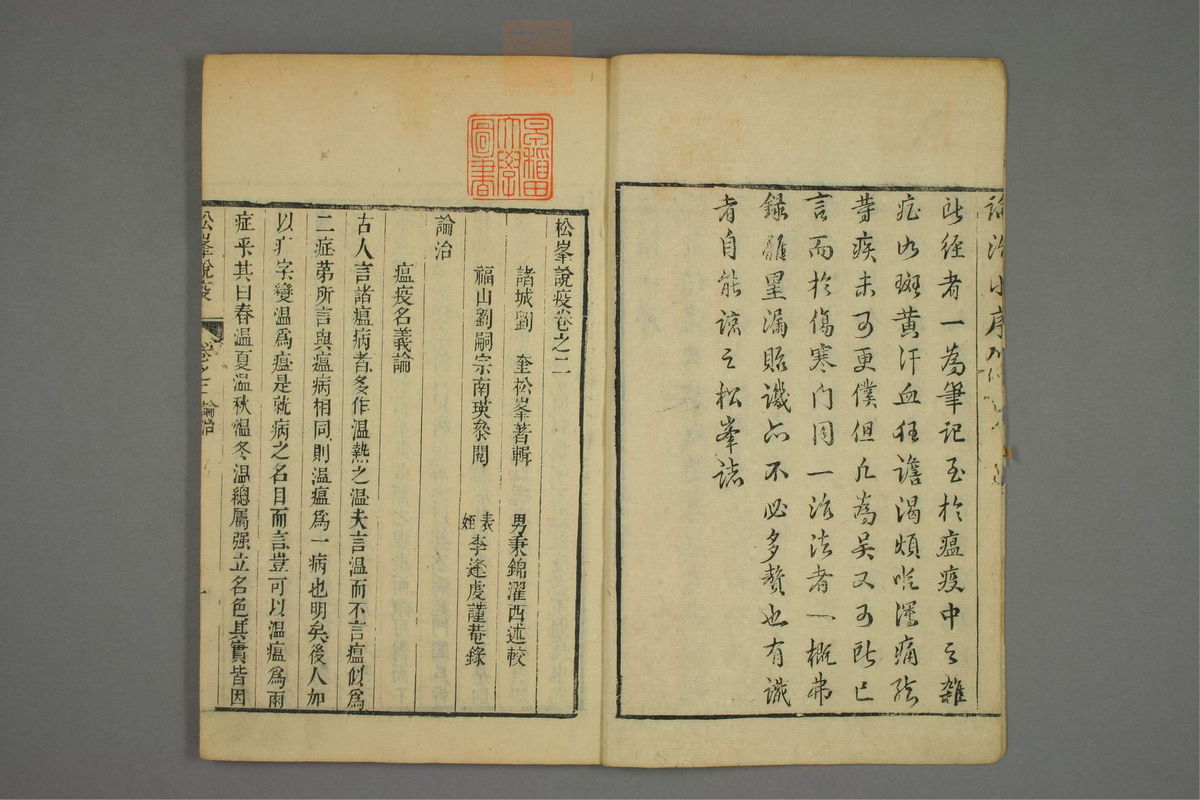 論治小序
所經者一為筆記至於瘟疫中之雜
症如斑黃汗血狂譫渴煩吐瀉痛結
等疾未可更僕但凡為吳又可所已
言而於傷寒門同一治法者一概弗
錄雖罣漏貽譏亦不必多贅也有識
者自能諒之松峯誌
早稻田大學圖書
松峯說疫卷之二
諸城劉 奎松峯著輯 男秉錦濯西述較
福山劉嗣宗南瑛叅閱 表姪李逢虔謹菴錄
論治
瘟疫名義論
古人言諸瘟病者多作温熱之温夫言温而不言瘟似爲
二症第所言與瘟病相同則温瘟爲一病也明矣後人加
以疒字變温爲瘟是就病之名目而言豈可以温瘟爲兩
症乎其曰春温夏温秋温冬温總屬强立名色其實皆因
松峯說疫 卷之二 論治 一